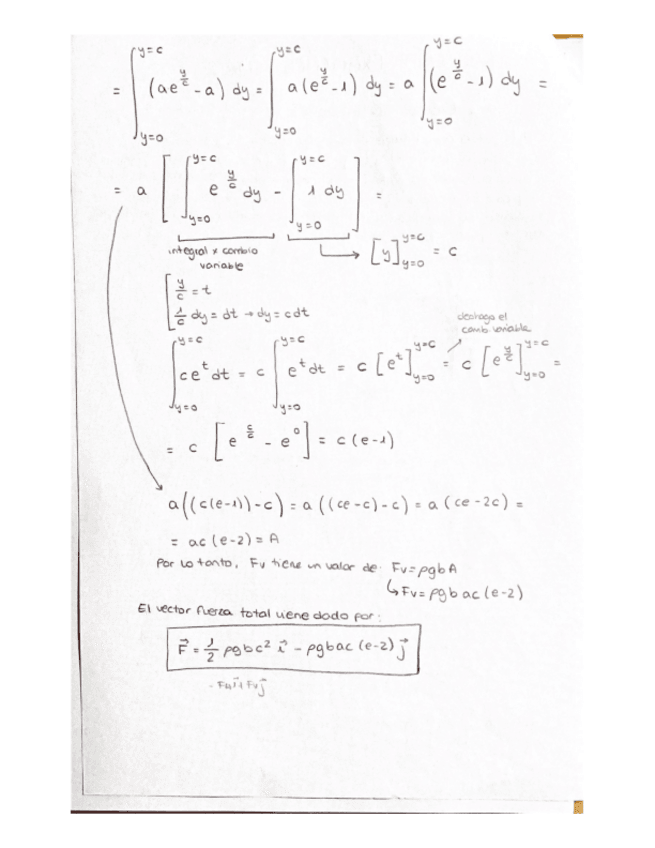 = ∫_{y=0}^{y=c} (ae^{y/c} - a) dy = ∫_{y=0}^{y=c} a(e^{y/c} - 1) dy = a ∫_{y=0}^{y=c} (e^{y/c} - 1) dy =
= a [ ∫_{y=0}^{y=c} e^{y/c} dy - ∫_{y=0}^{y=c} 1 dy ] =
integral x cambio variable
[y]_{y=0}^{y=c} = c
y/c = t
1/c dy = dt → dy = c dt
deshago el
camb. variable
∫_{y=0}^{y=c} ce^t dt = c ∫_{y=0}^{y=c} e^t dt = c [e^t]_{y=0}^{y=c} = c [e^{y/c}]_{y=0}^{y=c} =
= c [e^{c/c} - e^0] = c(e-1)
a((c(e-1))-c) = a((ce-c)-c) = a(ce-2c) =
= ac(e-2) = A
Por lo tanto, Fv tiene un valor de: Fv = ρgbA
↳ Fv = ρgbac(e-2)
El vector fuerza total viene dado por:
F⃗ = 1/2 ρgbc² i⃗ - ρgbac(e-2) j⃗